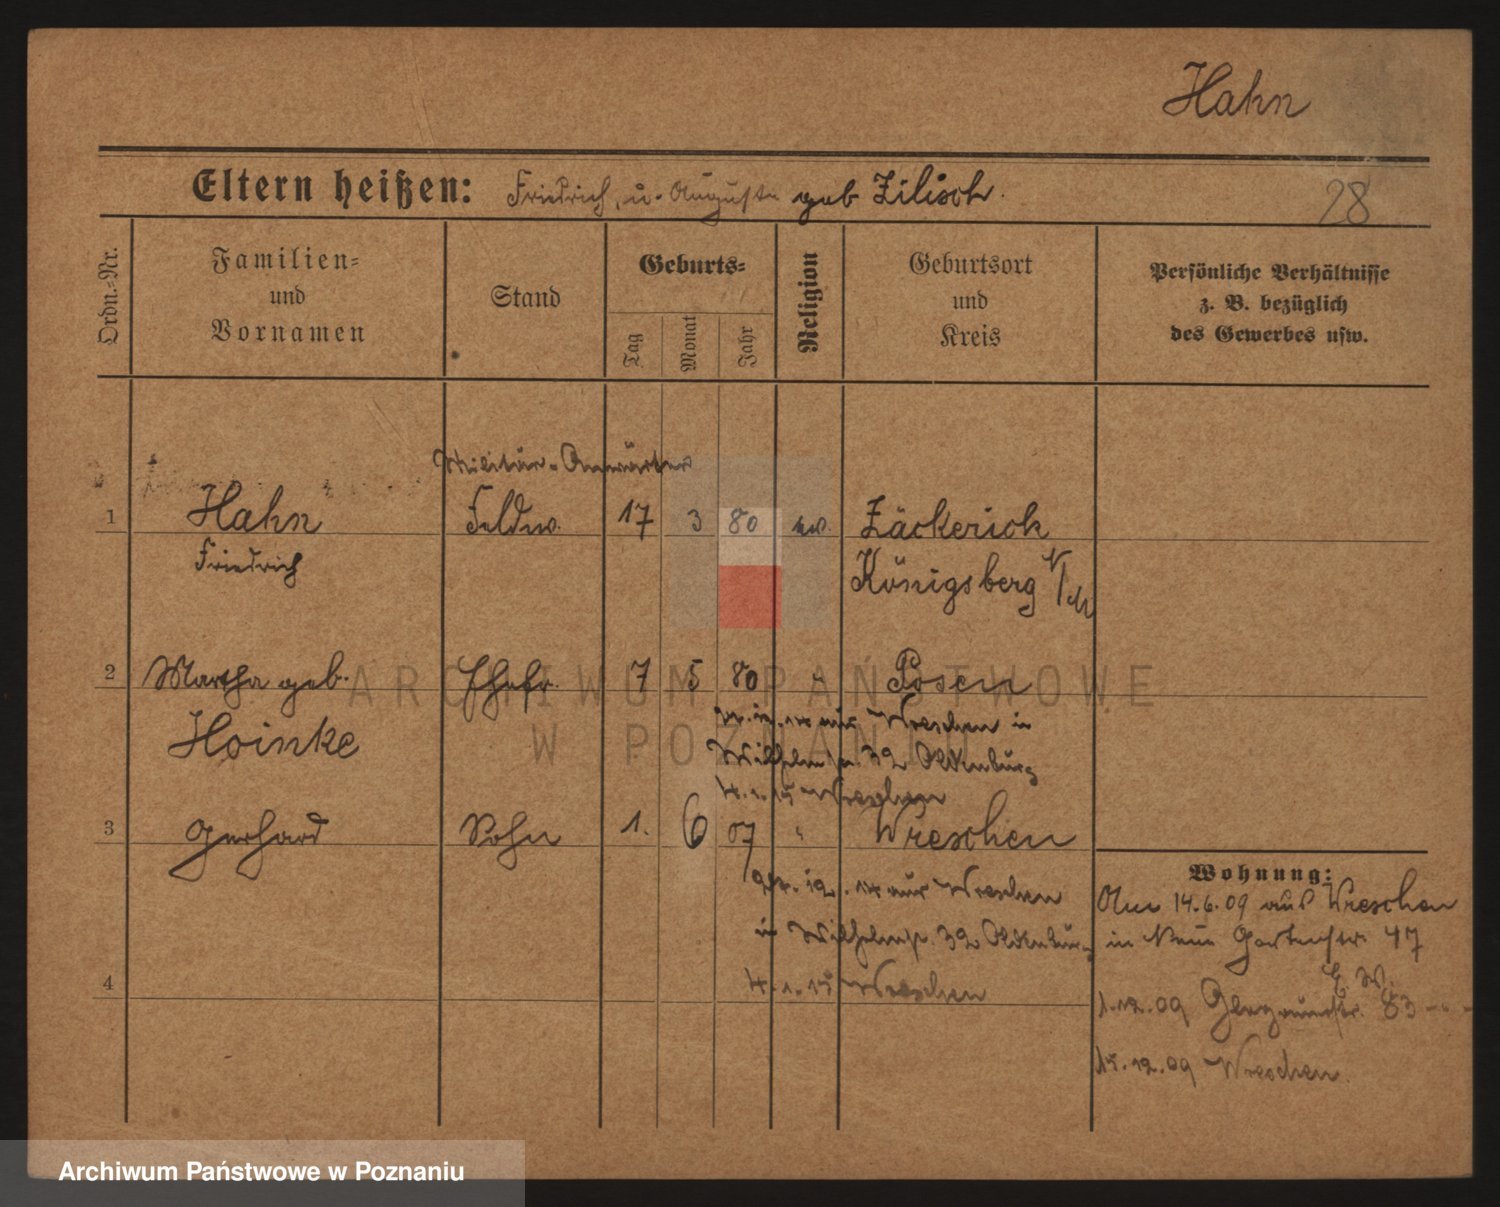 Hahn
Eltern heißen: Friedrich, u. Auguste geb Zilisch.
28
Ordn.-Nr.
Familien-
und
Vornamen
Stand
Geburts-
Tag
Monat
Jahr
Religion
Geburtsort
und
Kreis
Persönliche Verhältnisse
z. B. bezüglich
des Gewerbes usw.
Militär-Anwärter
1 Hahn Feldw. 17 3 80 ev. Zäckerick
Friedrich Königsberg N/M
2 Martha geb. Ehefr. 7 5 80 " Posen
Hoinke
aus Wreschen in
Wilhelmstr. 32 Oldenburg
4.1.15 Wreschen
3 Gerhard Sohn 1. 6 07 " Wreschen
12.14 aus Wreschen
in Wilhelmstr. 32 Oldenburg
4.1.15 Wreschen
4
Wohnung:
14.6.09 aus Wreschen
in Neue Gartenstr. 47
1.12.09 83
15.12.09 Wreschen.
ARCHIWUM PAŃSTWOWE
W POZNANIU
Archiwum Państwowe w Poznaniu